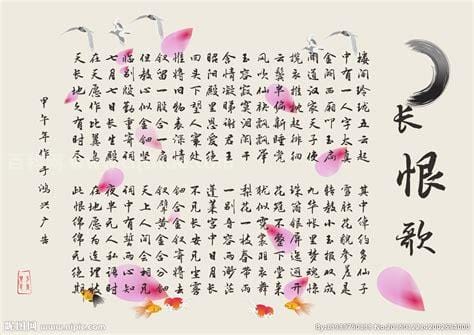 长恨歌
楼阁玲珑五云起 其中绰约多仙子
中有一人字太真 雪肤花貌参差是
金阙西厢叩玉扃 转教小玉报双成
闻道汉家天子使 九华帐里梦魂惊
揽衣推枕起徘徊 珠箔银屏迤逦开
云鬓半偏新睡觉 花冠不整下堂来
风吹仙袂飘飘举 犹似霓裳羽衣舞
玉容寂寞泪阑干 梨花一枝春带雨
含情凝睇谢君王 一别音容两渺茫
昭阳殿里恩爱绝 蓬莱宫中日月长
回头下望人寰处 不见长安见尘雾
惟将旧物表深情 钿合金钗寄将去
钗留一股合一扇 钗擘黄金合分钿
但教心似金钿坚 天上人间会相见
临别殷勤重寄词 词中有誓两心知
七月七日长生殿 夜半无人私语时
在天愿作比翼鸟 在地愿为连理枝
天长地久有时尽 此恨绵绵无绝期
甲午年作于鸿兴广告
昵图网
www.nipic.com